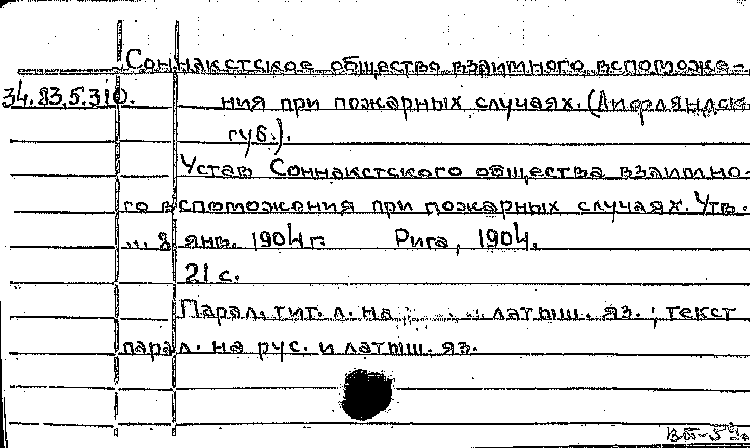 Соннакстское общество взаимного вспоможе-
34.83.5.310.
ния при пожарных случаях. (Лифляндск.
губ.).
Устав Соннакстского общества взаимно-
го вспоможения при пожарных случаях. Утв.
... 8 янв. 1904 г. Рига, 1904.
21 с.
Парал. тит. л. на латыш. яз.; текст
парал. на рус. и латыш. яз.